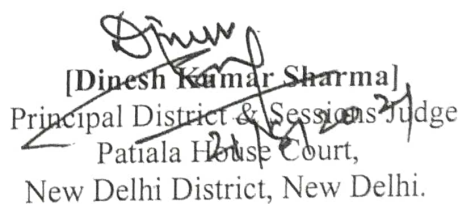 Dinesh
[Dinesh Kumar Sharma]
Principal District & Sessions Judge
Patiala House Court,
New Delhi District, New Delhi.